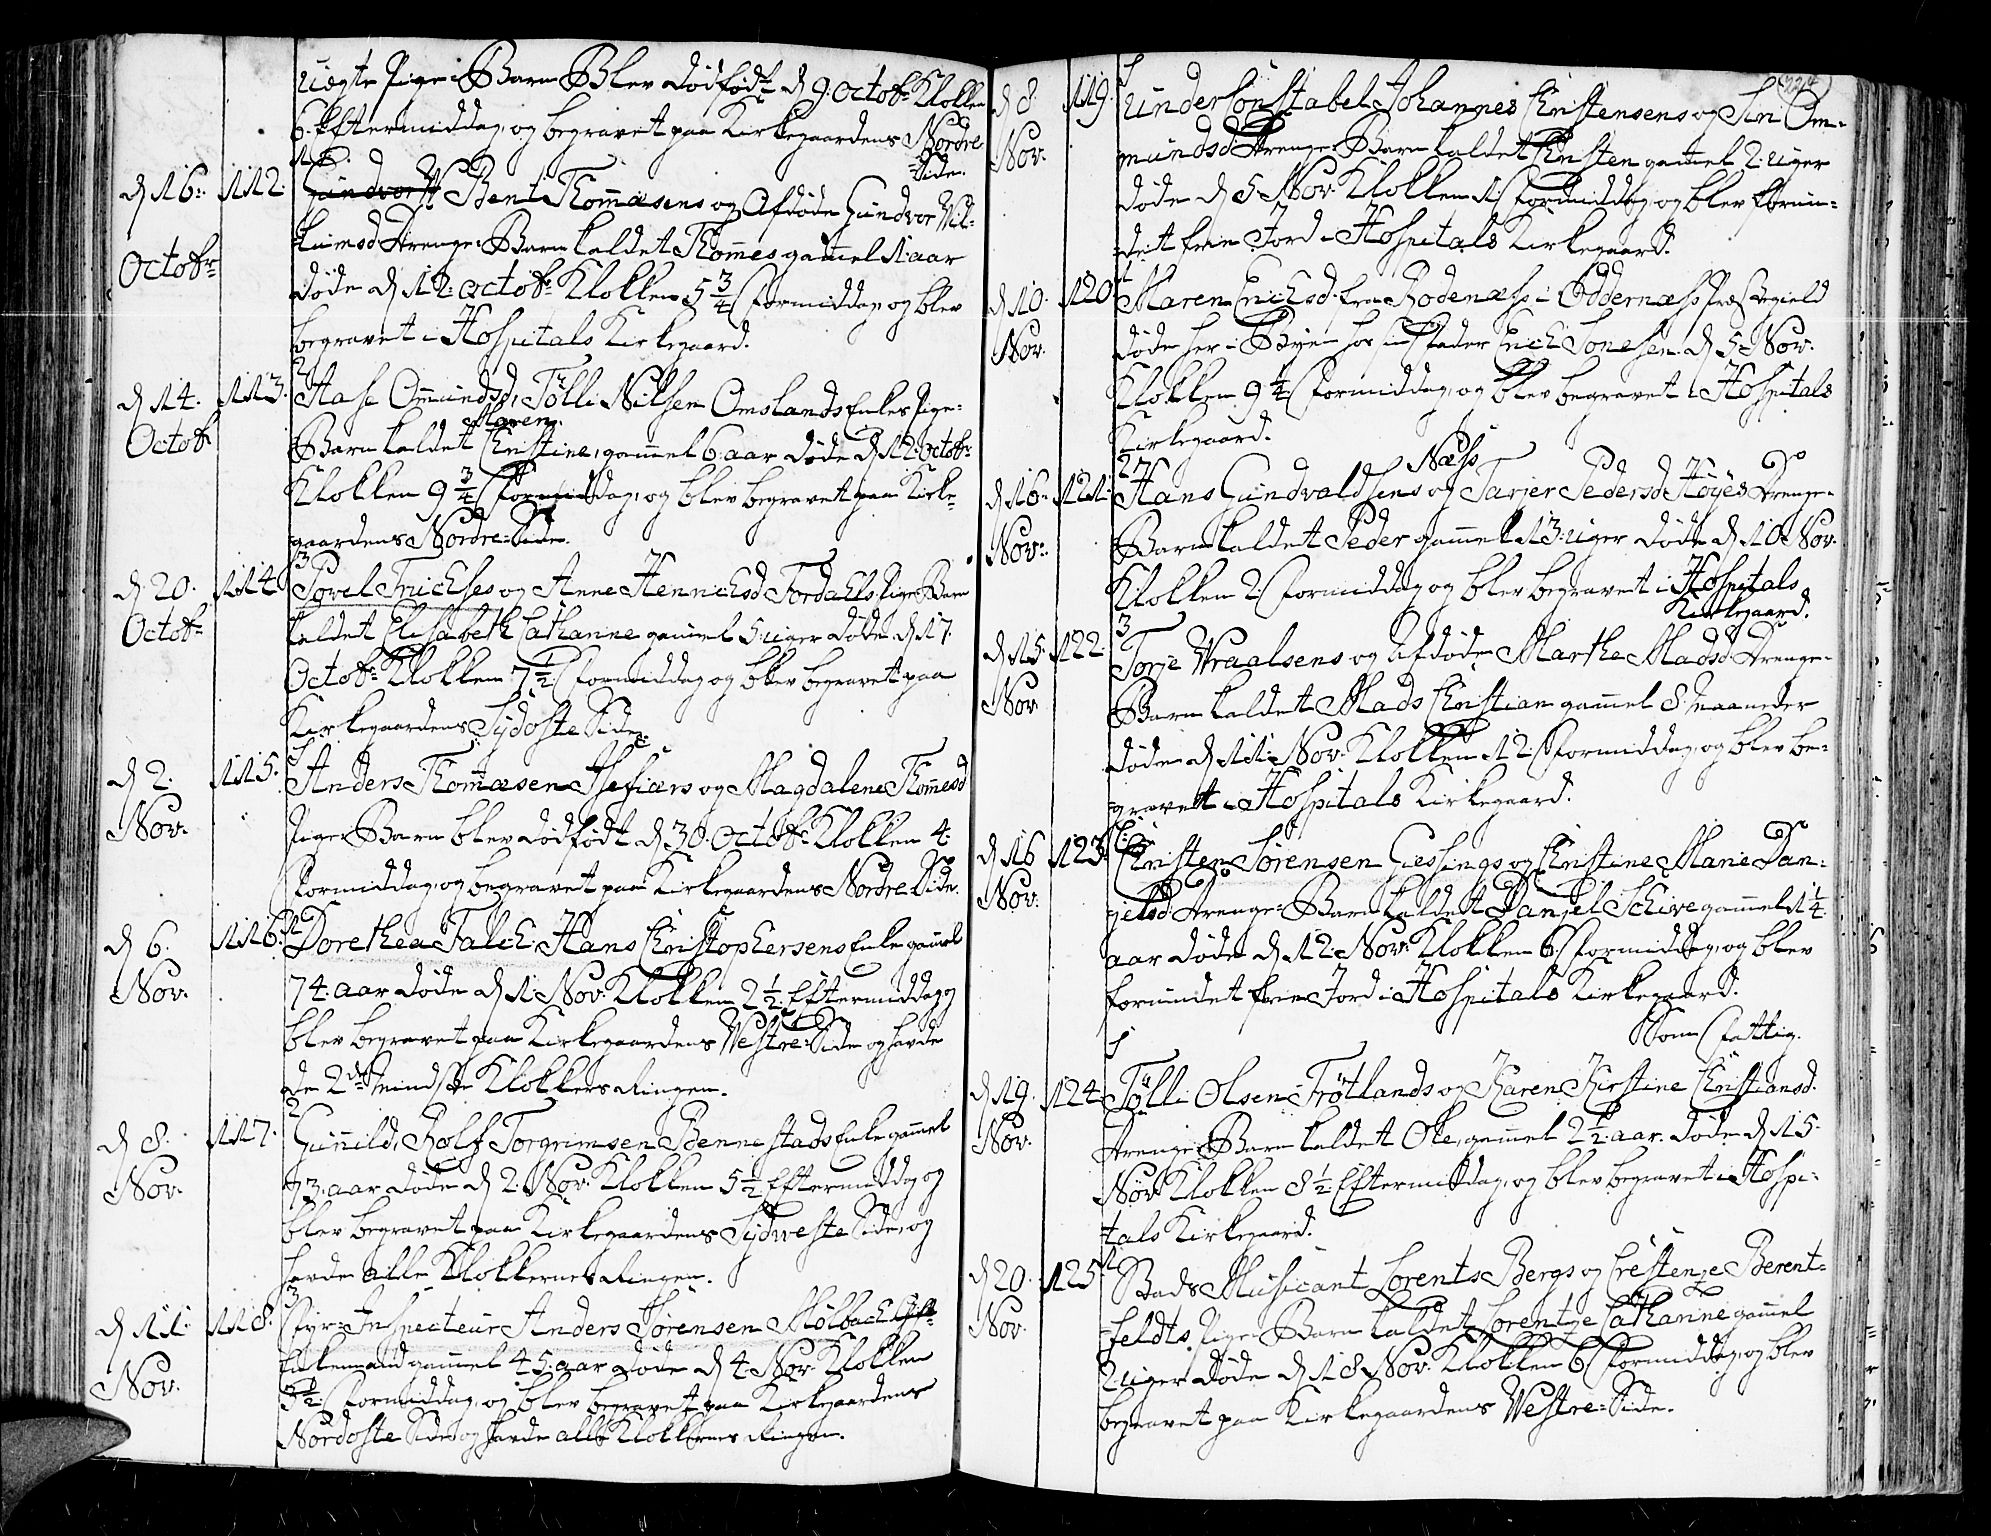 uægte Pige-Barn Blev Dødfødt d 9 Octobr Klokken
6. Eftermiddag, og begravet paa Kirkegaardens Nordre
Side.
d 16. Octobr 112. Gundvor Bent Thommæsens og Afdøde Gundvor Wil-
kumsd Drenge-Barn kaldet Thommes gamel 1 aar
Døde d 12. Octobr Klokken 5 3/4 formiddag, og blev
begravet i Hospitals Kirkegaard.
2
d 14. Octobr 113. Aase Ommundsd, Tølli Nilsen Omslands Enkes Pige-
Maren
Barn kaldet Christine, gammel 6 aar døde d 12. Octobr
Klokken 9 3/4 formiddag, og blev begravet paa Kirke-
gaardens Nordre-Side.
3
d 20. Octobr 114. Povel Truelses og Anne Henrichsd Fordahls Pige-Barn
kaldet Elisabeth Cathanne gamel 5 uger døde d 17.
Octobr Klokken 7 1/2 formiddag og blev begravet paa
Kirkegaardens Sydoste Side.
d 2. Nov. 115. Anders Thommæsen og Magdalene Thommesd
Pige-Barn blev dødfødt d 30. Octobr Klokken 4.
formiddag, og begravet paa Kirkegaardens Nordre Side.
d 6. Nov. 116. Dorethea Falch, Hans Christophersens Enke gamel
74. aar døde d 1. Nov. Klokken 2 1/2 Eftermiddag og
blev begravet paa Kirkegaardens Westre-Side og havde
de 2de mindste Klokkers Ringen.
2
d 8. Nov. 117. Gunnild, Rolf Torgrimsen Bennestads Enke gamel
73. aar døde d 2. Nov. Klokken 5 1/2 Eftermiddag og
blev begravet paa Kirkegaardens Sydweste Side, og
havde alle Klokkernes Ringen.
3
d 11. Nov. 118. Fyr-Inspecteur Anders Sørensen Mølbach
Enkemand gamel 45. aar døde d 4 Nov. Klokken
3 1/2 formiddag, og blev begravet paa Kirkegaardens
Nordoste Side, og havde alle Klokkernes Ringen.
d 8 Nov. 119. Under Constabel Johannes Christensens og Siri Om-
mundsd Drenge-Barn kaldet Christen gamel 2. uger
døde d 5 Nov. Klokken 1 formiddag, og blev forun-
det frie Jord i Hospitals Kirkegaard.
d 10. Nov. 120. Maren Erichsd. fra Rodenæss i Oddernæss Præstegield
døde her i Byen hos sin Fader Erich Tonesen d 5 Nov.
Klokken 9 1/4 formiddag, og blev begravet i Hospitals
Kirkegaard.
2 Næss
d 16. Nov. 121. Hans Gundvaldsens og Tarjer Pedersd Høyes Drenge-
Barn kaldet Peder gammel 13. uger døde d 10 Nov.
Klokken 2. formiddag og blev begravet i Hospitals
Kirkegaard.
3
d 15. Nov. 122. Torje Wraalsens og Afdøde Marthe Madsd Drenge-
Barn kaldet Mads Christian gamel 8 maaneder
døde d 11. Nov. Klokken 12. formiddag, og blev be-
gravet i Hospitals Kirkegaard.
d 16 Nov. 123. Christen Sørensen Giessings og Christine Marie Dan-
jelsd. Drenge-Barn kaldet Danjel Schive gamel 1 1/4.
aar døde d 12. Nov. Klokken 6. formiddag, og blev
forundet frie Jord i Hospitals Kirkegaard.
Som fattig.
d 19. Nov. 124. Tølli Olsen Frøtlands og Karen Kirstine Christiansd.
Drenge-Barn kaldet Ole, gamel 2 1/2 aar døde d 15.
Nov. Klokken 8 1/2 Eftermiddag, og blev begravet i Hospi-
tals Kirkegaard.
d 20. Nov. 125. Stads Musicant Lorents Bergs og Crestenze Berent-
feldts Pige-Barn kaldet Lorentze Cathanne gamel
2 uger døde d 18 Nov. Klokken 6 formiddag, og blev
begravet paa Kirkegaardens Westre-Side.